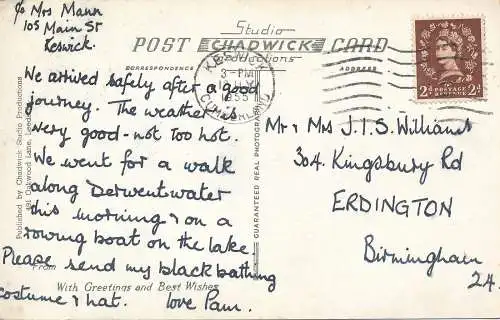 c/o Mrs Mann
105 Main St
Keswick.
Studio
POST CHADWICK CARD
Productions
CORRESPONDENCE
ADDRESS
KESWICK
3-PM
JLY
1955
CUMBERLAND
2d POSTAGE REVENUE 2d
We arrived safely after a good
journey. The weather is
very good - not too hot.
We went for a walk
along Derwentwater
this morning & on a
rowing boat on the lake.
Please send my black bathing
costume & hat. love Pam.
From
With Greetings and Best Wishes
Mr & Mrs J.I.S. Williams
304 Kingsbury Rd
ERDINGTON
Birmingham
24.
Published by Chadwick Studio Productions
Oakwood Lane, Leeds
GUARANTEED REAL PHOTOGRAPH